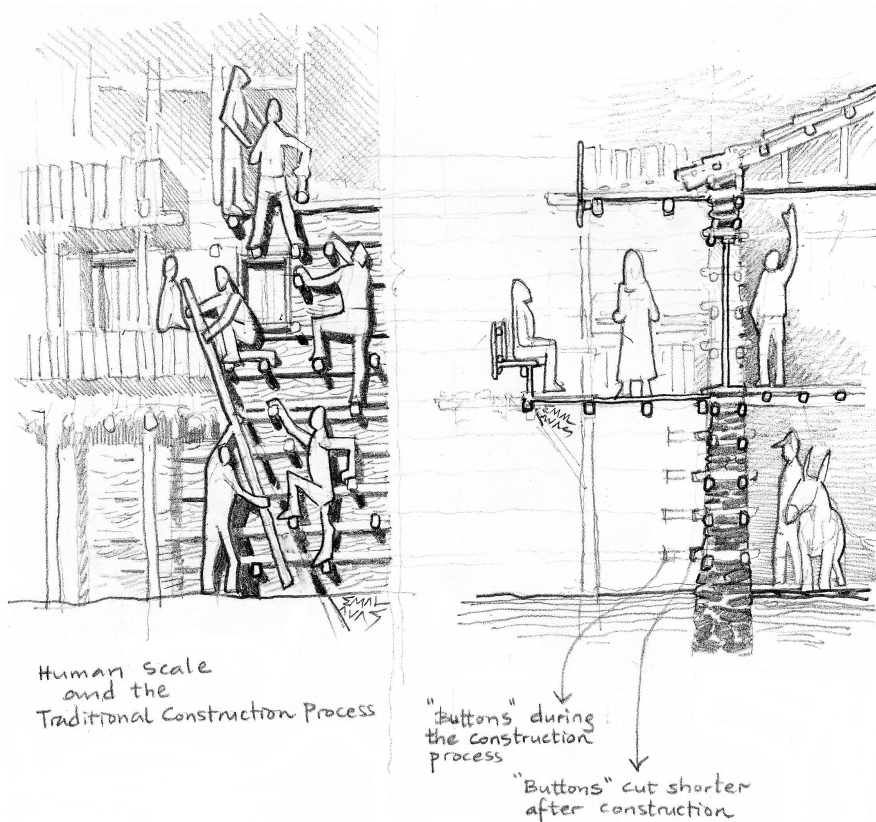 EMAL
IVAS
EMAL
IVAS
Human scale
and the
Traditional Construction Process
"Buttons" during
the construction
process
"Buttons" cut shorter
after construction